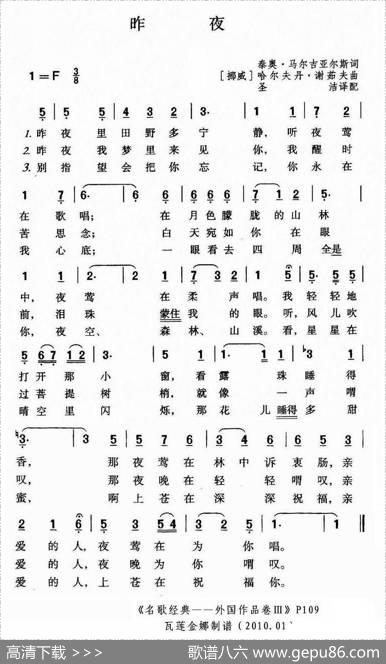 昨 夜
泰奥·马尔吉亚尔斯词
1=F 3/8
[挪威]哈尔夫丹·谢茹夫曲
圣 洁译配
5 5 5 4 3 2 3· 1 1 1
1.昨夜里田野多宁 静,听夜莺
2.昨夜我梦里来见 你,我醒时
3.别指望会把你忘 记,你永在
1 7 6· 6 6 6 6 6 7 1 2 5
在歌唱; 在月色朦胧的山林
苦思念; 白天宛如你在眼
我心底; 一眼看去四周全是
中,夜莺 在柔声唱。我轻轻地
前,泪珠 蒙住我的眼。听,风儿吹
你,夜空、 森林、山溪。看,星星在
打开那小 窗,看露珠睡得
过菩提树 梢,就像一声喟
晴空里闪 烁,那花儿睡得多甜
香, 那夜莺在林中诉衷肠,亲
叹, 那夜晚在轻轻喟叹,亲
蜜, 啊上苍在深深祝福,亲
2 1 6 5 7 1 3 5 4 5 7 1·
爱的人,夜莺在为你唱。
爱的人,夜晚为你喟叹。
爱的人,上苍在祝福你。
《名歌经典——外国作品卷Ⅲ》P109
瓦莲金娜制谱(2010.01
高清下载 >>> 歌谱八六 www.gepu86.com